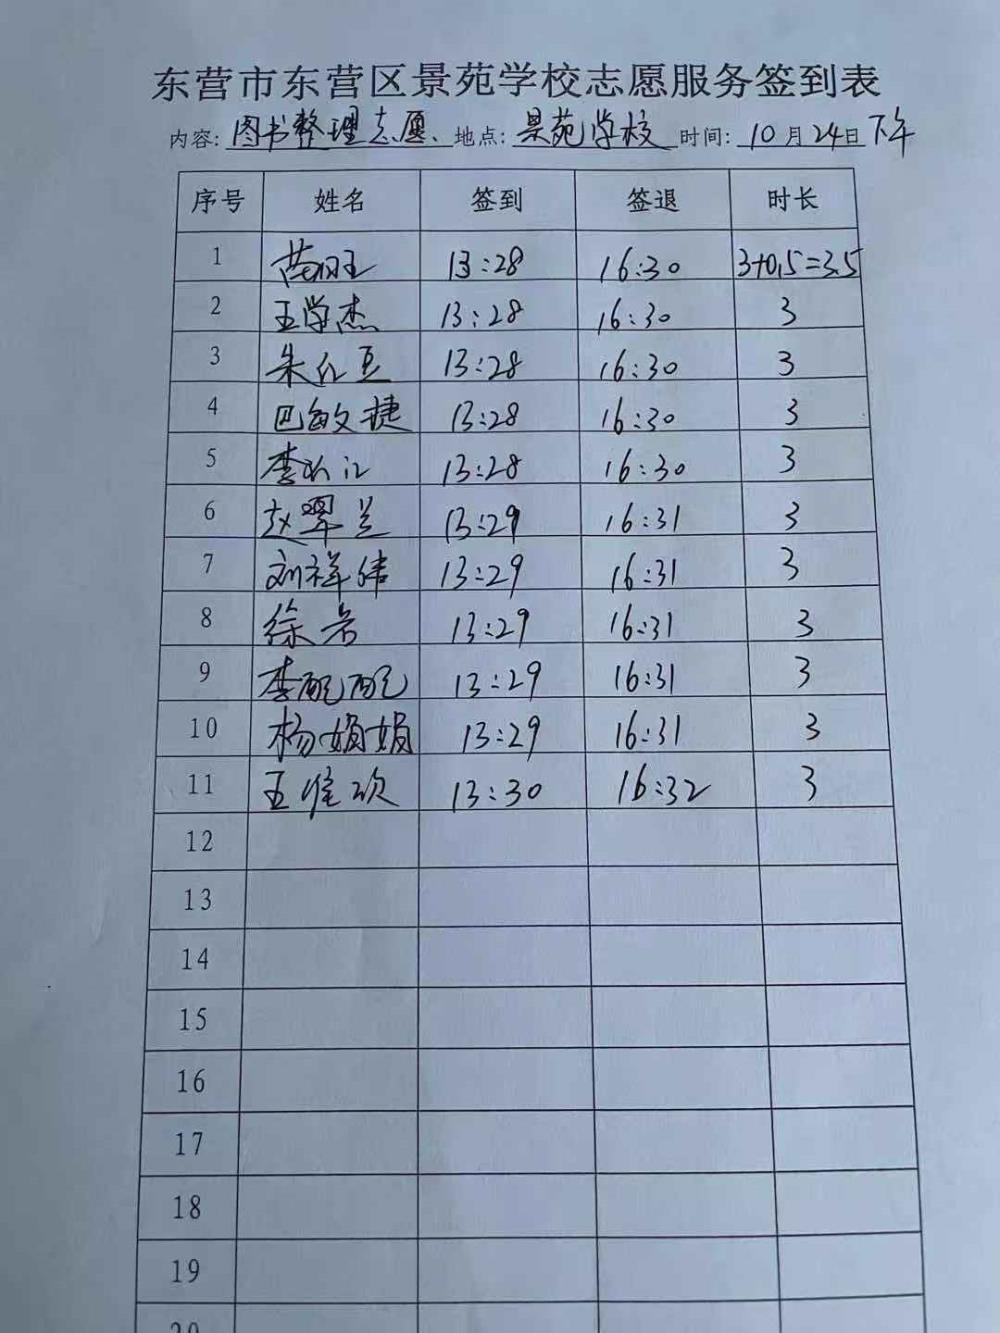 东营市东营区景苑学校志愿服务签到表
内容: 图书整理志愿、地点: 景苑学校 时间: 10月24日下午
序号 姓名 签到 签退 时长
1 13:28 16:30 3+0.5=3.5
2 王学杰 13:28 16:30 3
3 朱红豆 13:28 16:30 3
4 巴敏捷 13:28 16:30 3
5 李 13:28 16:30 3
6 赵翠兰 13:29 16:31 3
7 刘祥伟 13:29 16:31 3
8 徐芳 13:29 16:31 3
9 李 13:29 16:31 3
10 杨娟娟 13:29 16:31 3
11 王维欢 13:30 16:32 3
12
13
14
15
16
17
18
19
20